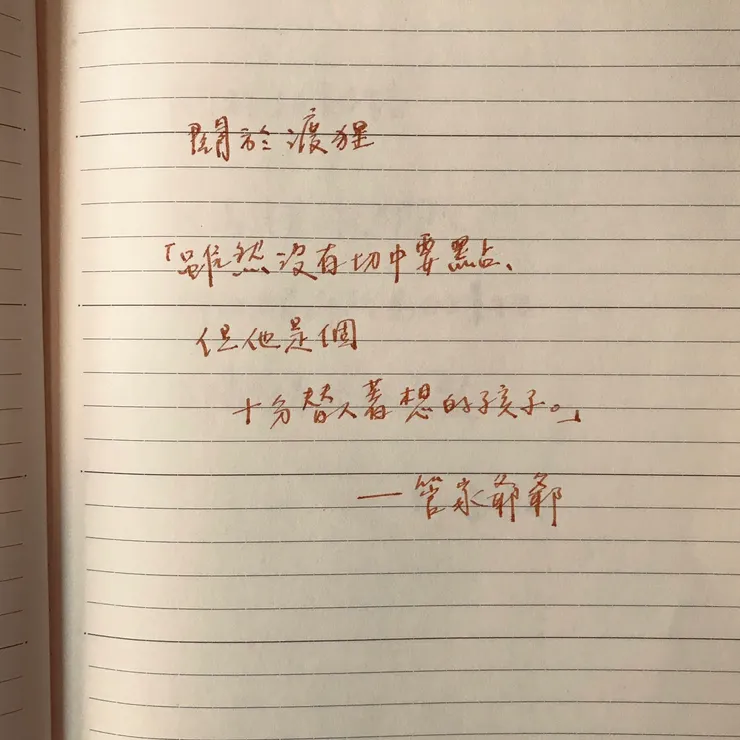 關於渡狸
「雖然沒有切中要點、
但他是個
十分替人著想的孩子。」
—管家爺爺